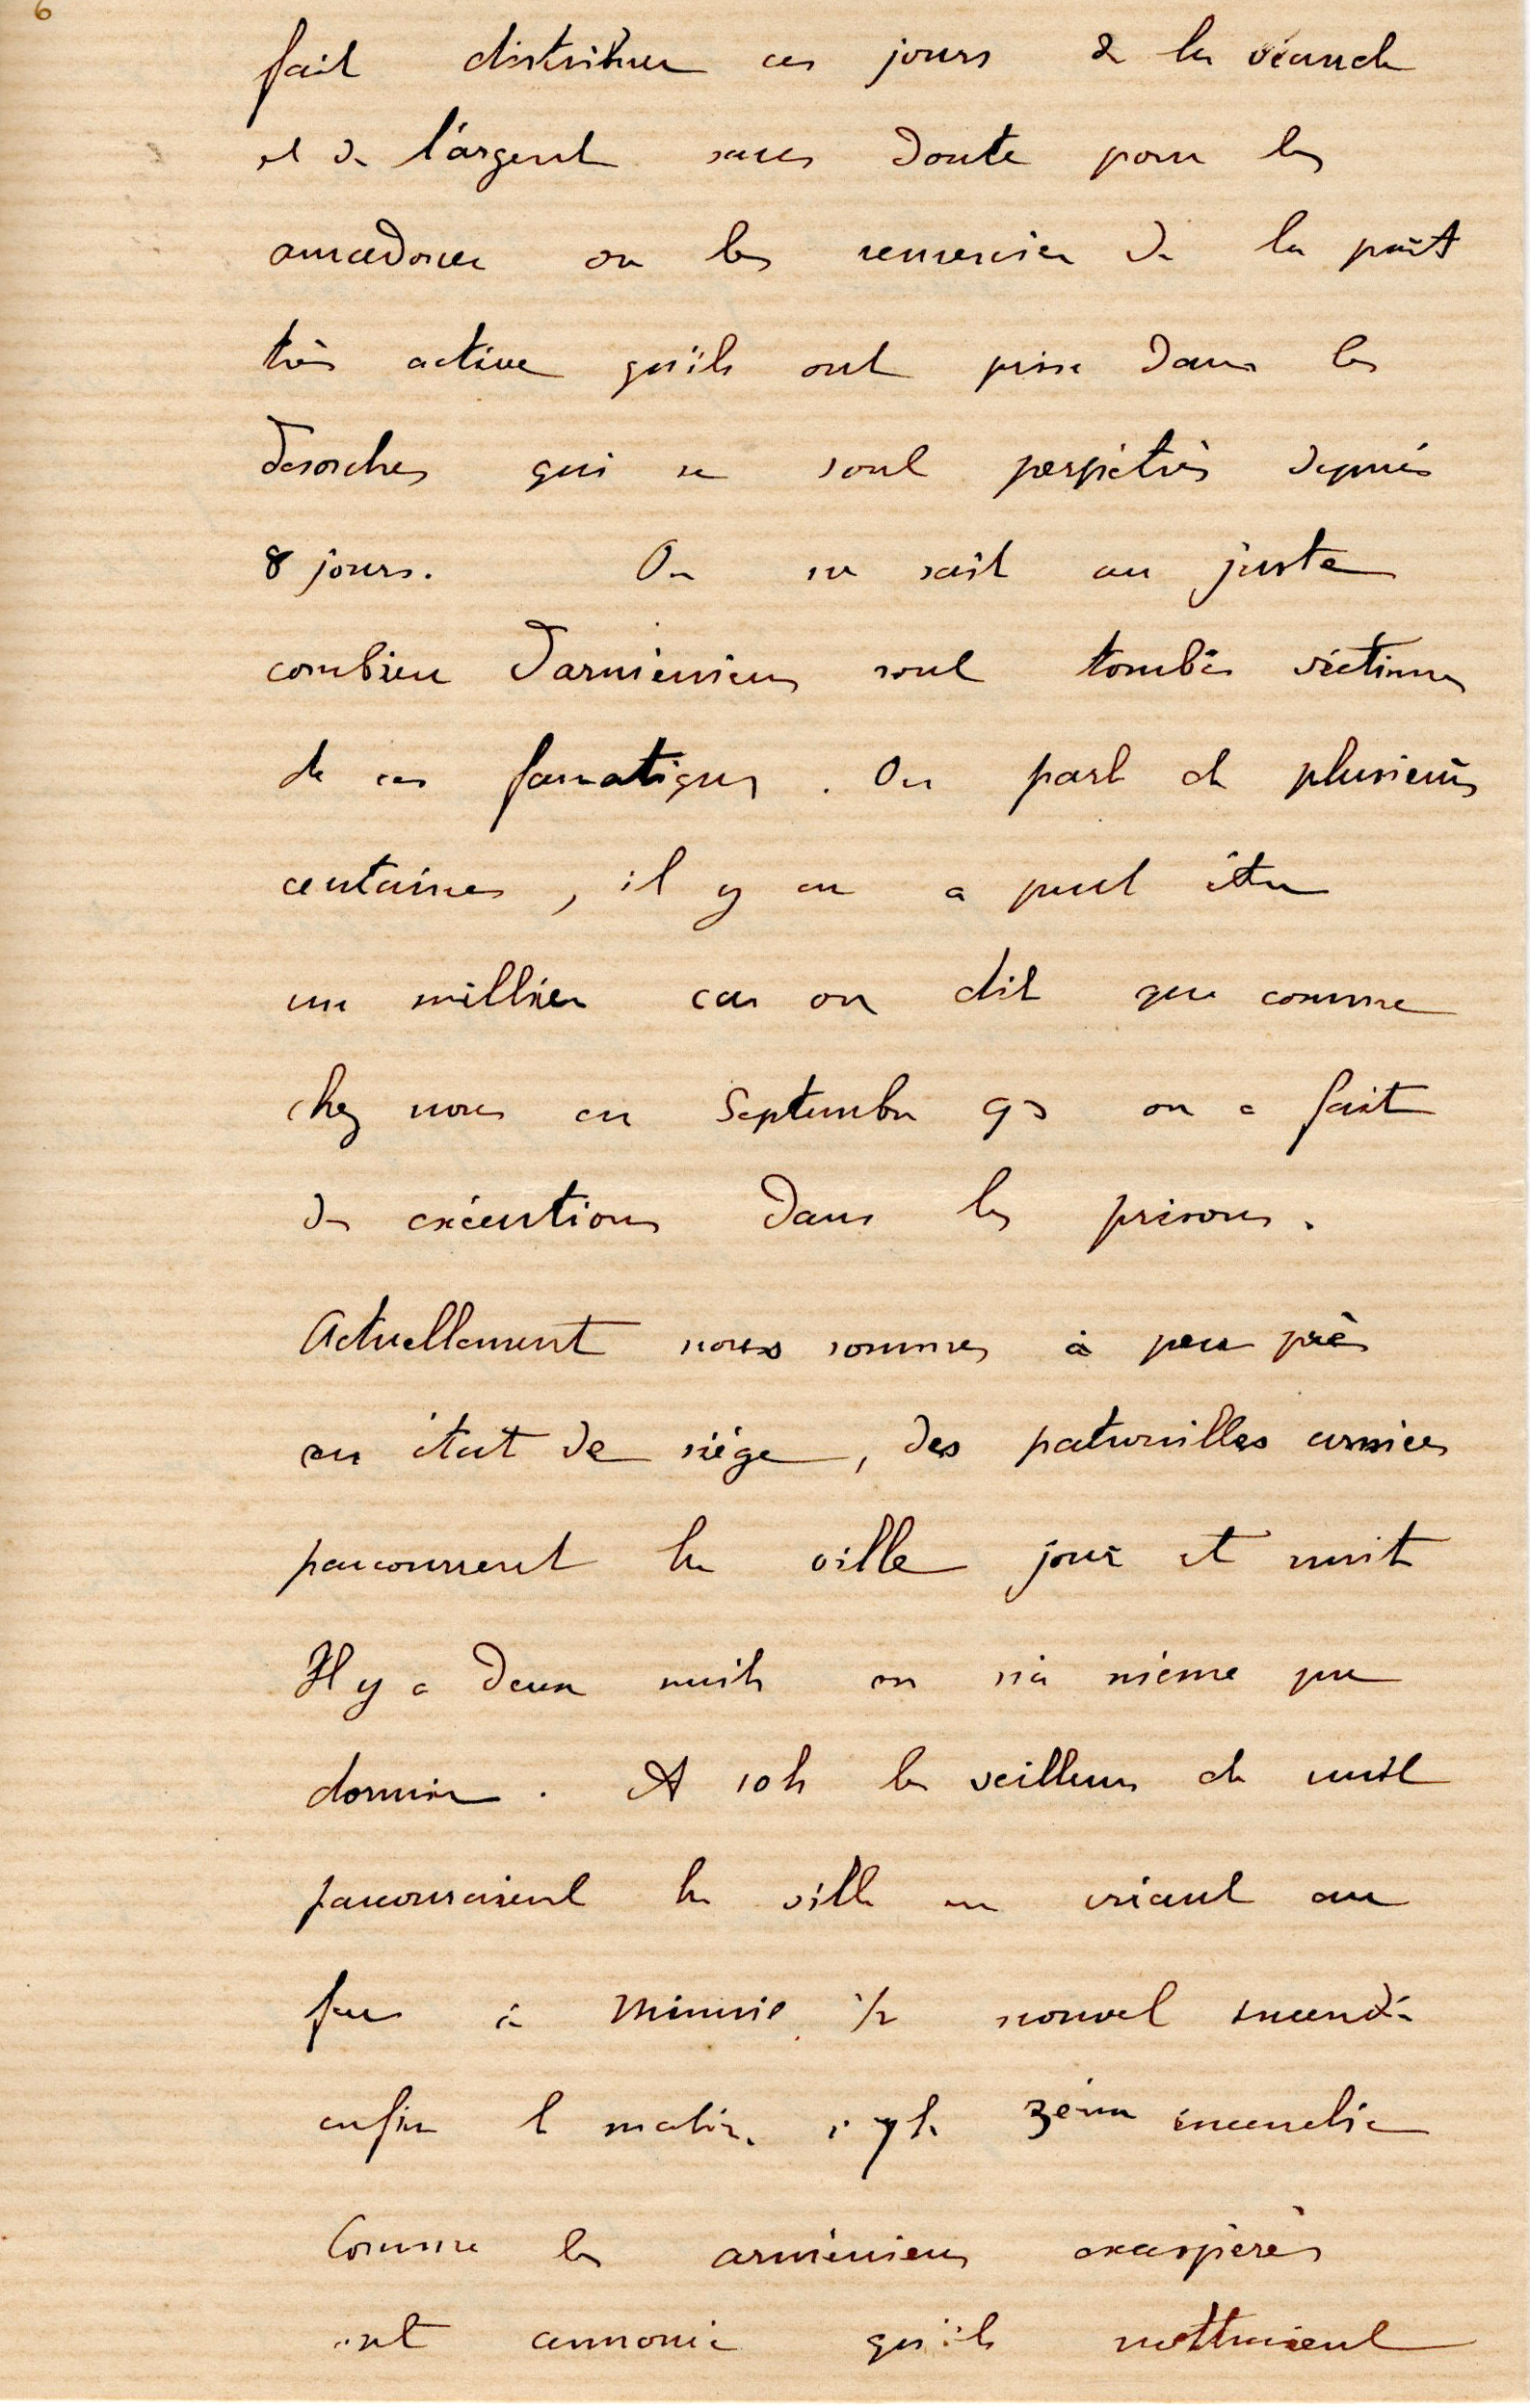 6
fait distribuer ces jours de la viande
et de l'argent sans doute pour les
amadouer ou les remercier de la part
très active qu'ils ont prise dans les
desordres qui se sont perpétrés depuis
8 jours. On ne sait au juste
combien d'arméniens sont tombés victimes
de ces fanatiques. On parle de plusieurs
centaines, il y en a peut être
un millier car on dit que comme
chez nous en Septembre 93 on a fait
des exécutions dans les prisons.
Actuellement nous sommes à peu près
en état de siége, des patrouilles armées
parcourrent la ville jour et nuit
Il y a deux nuits on n'a même pu
dormir. A 10h les veilleurs de nuit
parcouraient la ville en criant au
feu à Minuit 1/2 nouvel incendie
enfin le matin à 7h 3ème incendie
Comme les arméniens exaspérés
ont annoncé qu'ils mettraient